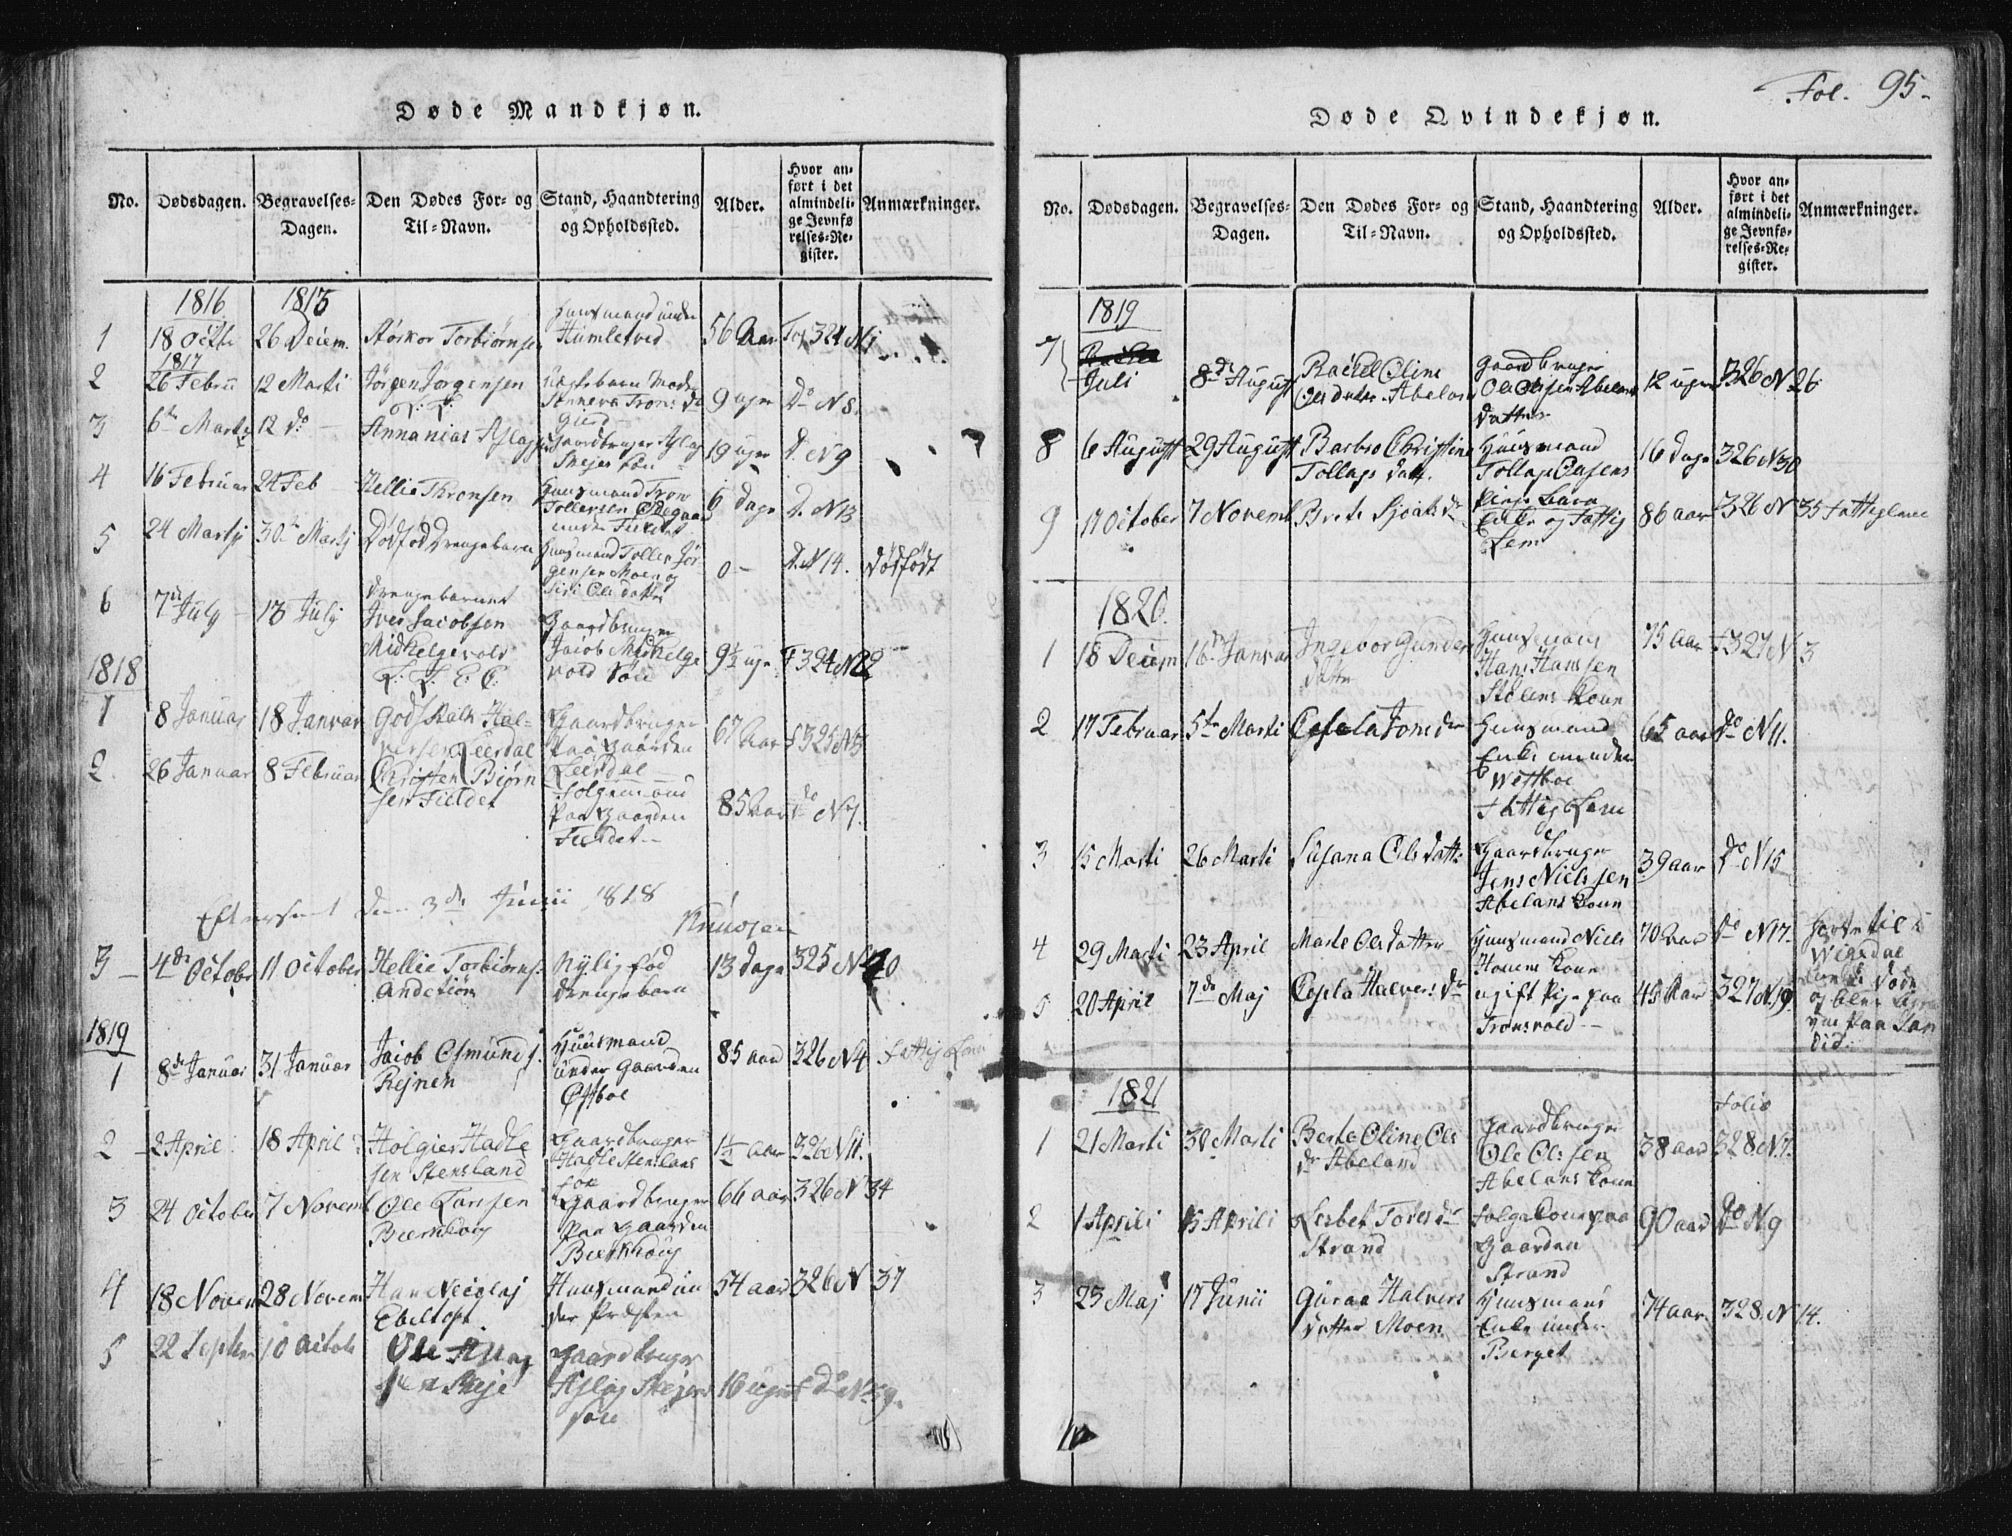 Fol. 95.
Døde Mandkjøn.
No.
Dødsdagen.
Begravelses-
Dagen.
Den Dødes For- og
Til-Navn.
Stand, Haandtering
og Opholdssted.
Alder.
Hvor an-
ført i det
almindeli-
ge Jevnfø
relses-Re-
gister.
Anmærkninger.
1816
1
18 Octb
26 Decem.
Torbiørnsen
Huusmand under
Humletved
56 Aar
Fol 324 N 1
1817
2
26 Febru
12 Marti
Jørgen Jørgensen
9 uger
Do N 8.
3
6te Marti
12 do
Annanias Aslags
Gaardbruger Aslag
Skejes Søn
19 uger
D. N 9
4
16 Februar
24 Feb
Hellie Thronsen
Huusmand Tron
Tollevsen
under Fieldet
6 Dage
D. N 13
5
24 Martj
30. Martj
Dødfød Drengebarn
Huusmand Tollev Jør-
gensen Moen og
Siri Olsdatter
0 -
D. N 14.
Dødfødt
6
7de July
13 July
Drengebarnet
Iver Jacobsen
Michelgsvold
Gaardbruger
Jacob Michelgs
vold Søn
9½ uge
F 324 N 22
1818
1
8 Januar
18 Januar
Godskalk Hal-
versen Leerdal
Gaardbruger
paa Gaarden
Leerdal
67 Aar
F 325 N 3
2
26 Januar
8 Februar
Christen Biørn
sen Fieldet
Folgemand
paa Gaarden
Fieldet
85 Aar
do N 7.
Efterseet den 3de Junii 1818
Knudsen
3
4de October
11 October
Hellie Torbiørns.
Nylig fød
Drengebarn
13 Dage
325 N 20
1819
1
8de Januar
31 Januar
Jacob Osmunds.
Rejnen
Huusmand
under Gaarden
Østboe
85 aar
326 N 4
Fattig Lem
2
2 April
18 April
Holgier Hadle
sen Stensland
Gaardbruger
Hadle Stenslans
Søn
1½ aar
326 N 11.
3
24 October
7 Novemb
Ole Larsen
Gaardbruger
paa Gaarden
66 aar
326 N 34
4
18 Novem
28 Novem
Hans Nicolaj
Ebeltoft
Huusmand un
der Præsten
54 aar
326 N 37
5
22 Septbr
10 Octob
Ole Aslag
sen Skeje
Gaardbruger
Aslag Skejes
Søn
16 uger
Do N 39.
Døde Qvindekjøn.
No.
Dødsdagen.
Begravelses-
Dagen.
Den Dødes For- og
Til-Navn.
Stand, Haandtering
og Opholdssted.
Alder.
Hvor an-
ført i det
almindeli-
ge Jevnfø-
relses-Re-
gister.
Anmærkninger.
1819
7
Juli
8de August
Rachel Oline
Olsdatter Abeland
Gaardbruger
Ole Olsen Abelans
Datter
12 uger
326 N 26
8
6 August
29 August
Barbro Christine
Tollags datt.
Huusmand
16 Dage
326 N 30
9
17 October
7 Novemb
Brite Sjoals dr
Enke og Fattig
Lem
86 aar
326 N 35
Fattiglem
1820.
1
18 Decem
16de Januar
Ingebor Gunder
datter
Huusmans
Hans Hansen
Stølens Kone
75 aar
F 327 N 3
2
17 Februar
5te Marti
Jons dr
Huusmand
Enke under
Westboe
Fattig Lem
65 aar
do N 11.
3
15 Marti
26 Marti
Susana Ols datt:
Gaardbruger
Jens Nielsen
Abelans Kone
39 aar
Do N 15
4
29 Marti
23 April
Marte Ols datter
Huusmand Niels
Kone
70 Aar
Do N 17.
5
20 April
7de Maj
Halvers dr
ugift Pige paa
Tronsvold
45 Aar
327 N 19.
1821
1
21 Marti
30 Marti
Berte Oline Ols
dr Abeland
Gaardbruger
Ole Olssen
Abelans Kone
38 aar
Folio
328 N 7.
2
1 Aprili
15 Aprili
Lisbet Tores dr
Strand
Folgekone paa
Gaarden
Strand
90 aar
Do N 9
3
23 Maj
17 Junii
Guraa Halvers
datter Moen
Huusmans
Enke under
Berget
74 aar
328 N 14.